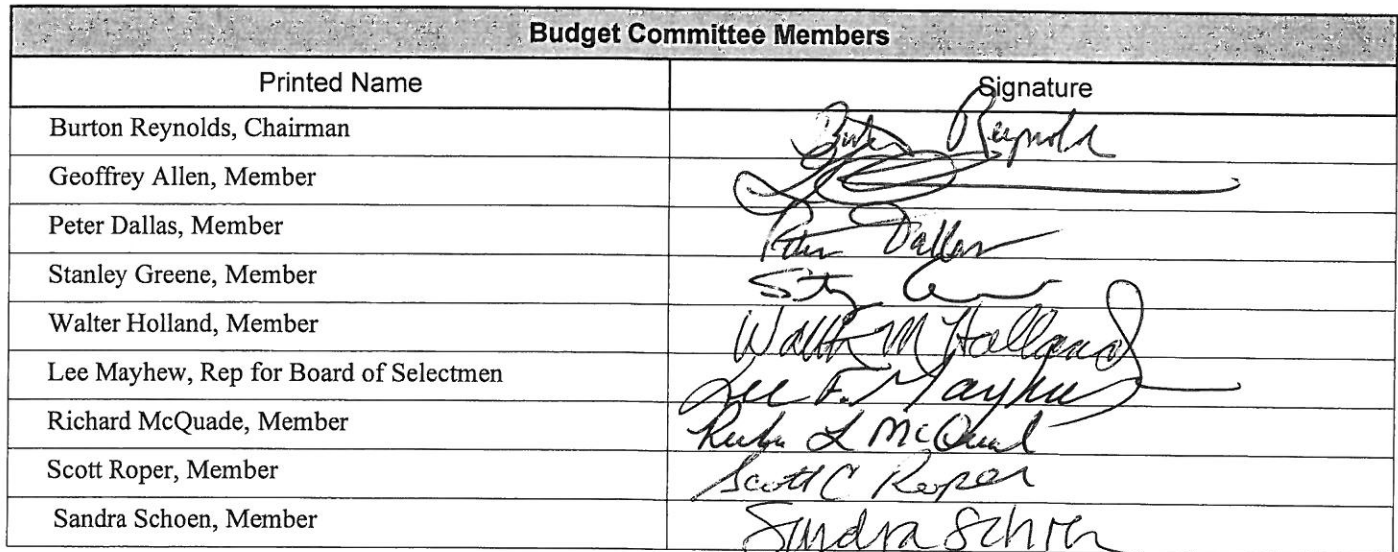 Budget Committee Members
Printed Name Signature
Burton Reynolds, Chairman Reynolds
Geoffrey Allen, Member
Peter Dallas, Member Peter Dallas
Stanley Greene, Member
Walter Holland, Member Walter M Holland
Lee Mayhew, Rep for Board of Selectmen Lee F. Mayhew
Richard McQuade, Member L McQuad
Scott Roper, Member Scott C Roper
Sandra Schoen, Member Sandra Schoen